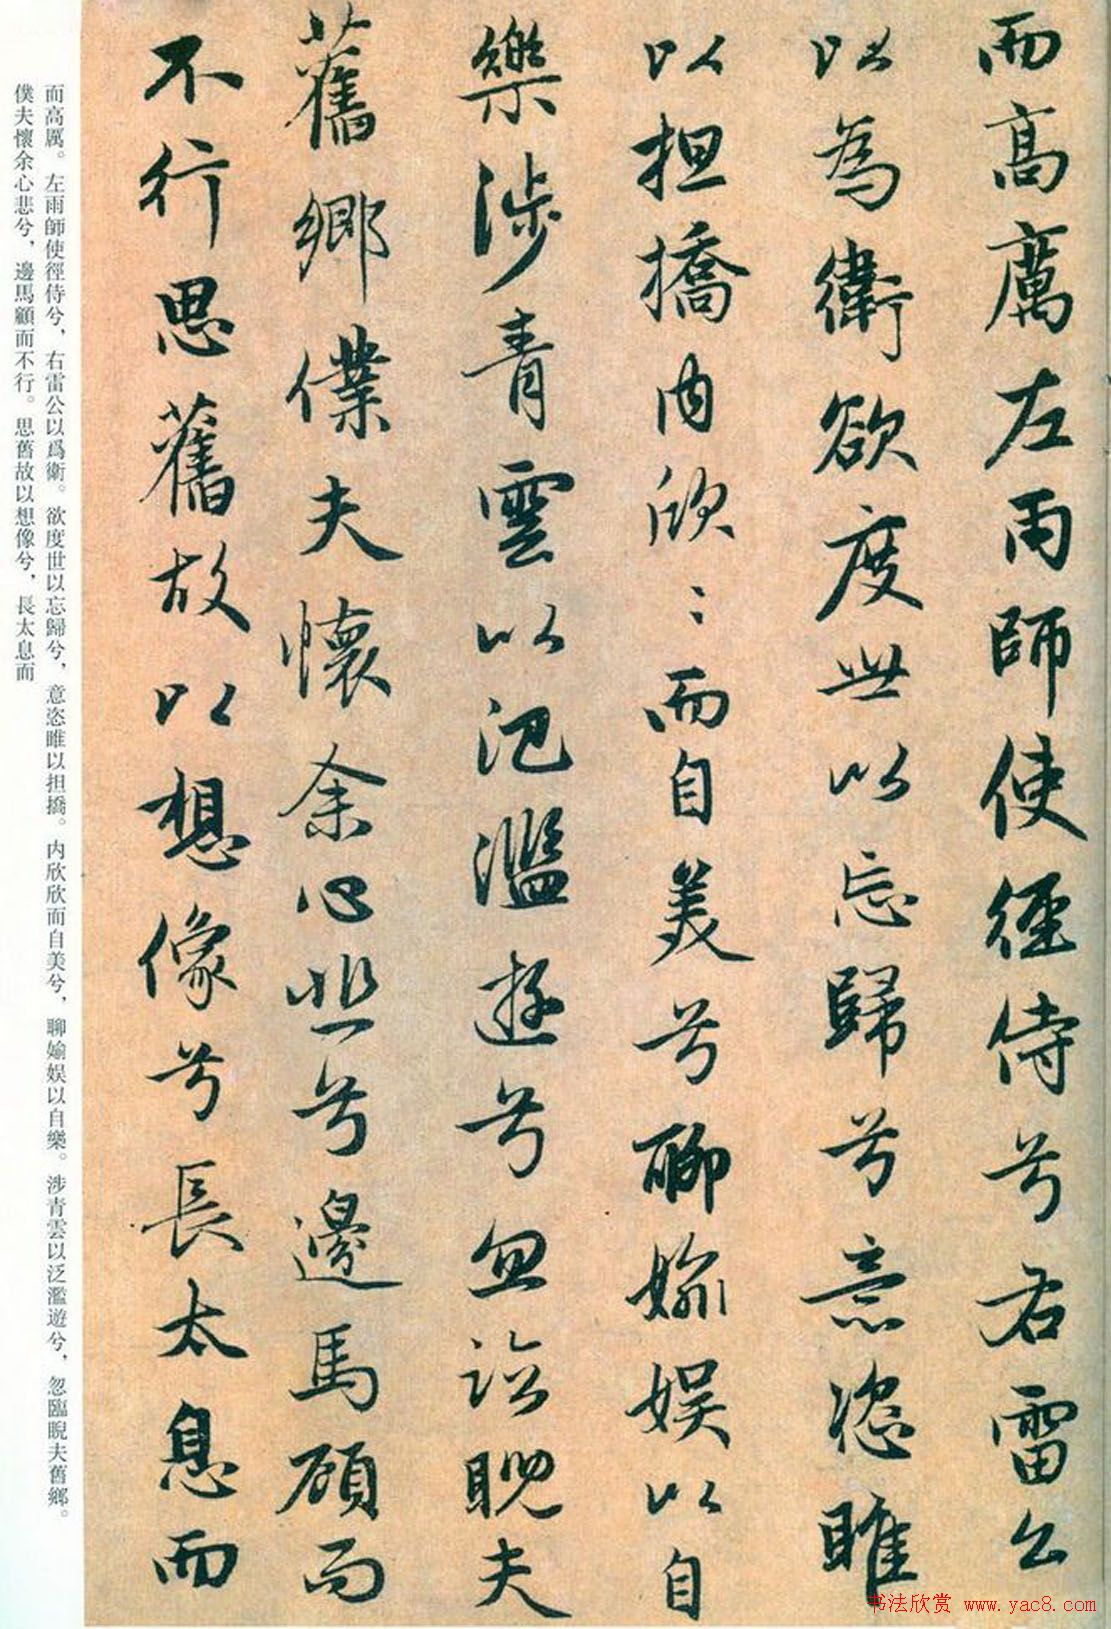 而高厲左雨師使徑侍兮右雷公
以為衛欲度世以忘歸兮意恣睢
以担撟内欣〻而自美兮聊婾娛以自
樂涉青雲以氾濫遊兮忽臨睨夫
舊鄉僕夫懷余心悲兮邊馬顧而
不行思舊故以想像兮長太息而
而高厲。左雨師使徑侍兮，右雷公以爲衛。欲度世以忘歸兮，意恣睢以担撟。内欣欣而自美兮，聊婾娛以自樂。涉青雲以泛濫遊兮，忽臨睨夫舊鄉。
僕夫懷余心悲兮，邊馬顧而不行。思舊故以想像兮，長太息而
书法欣赏 www.yac8.com